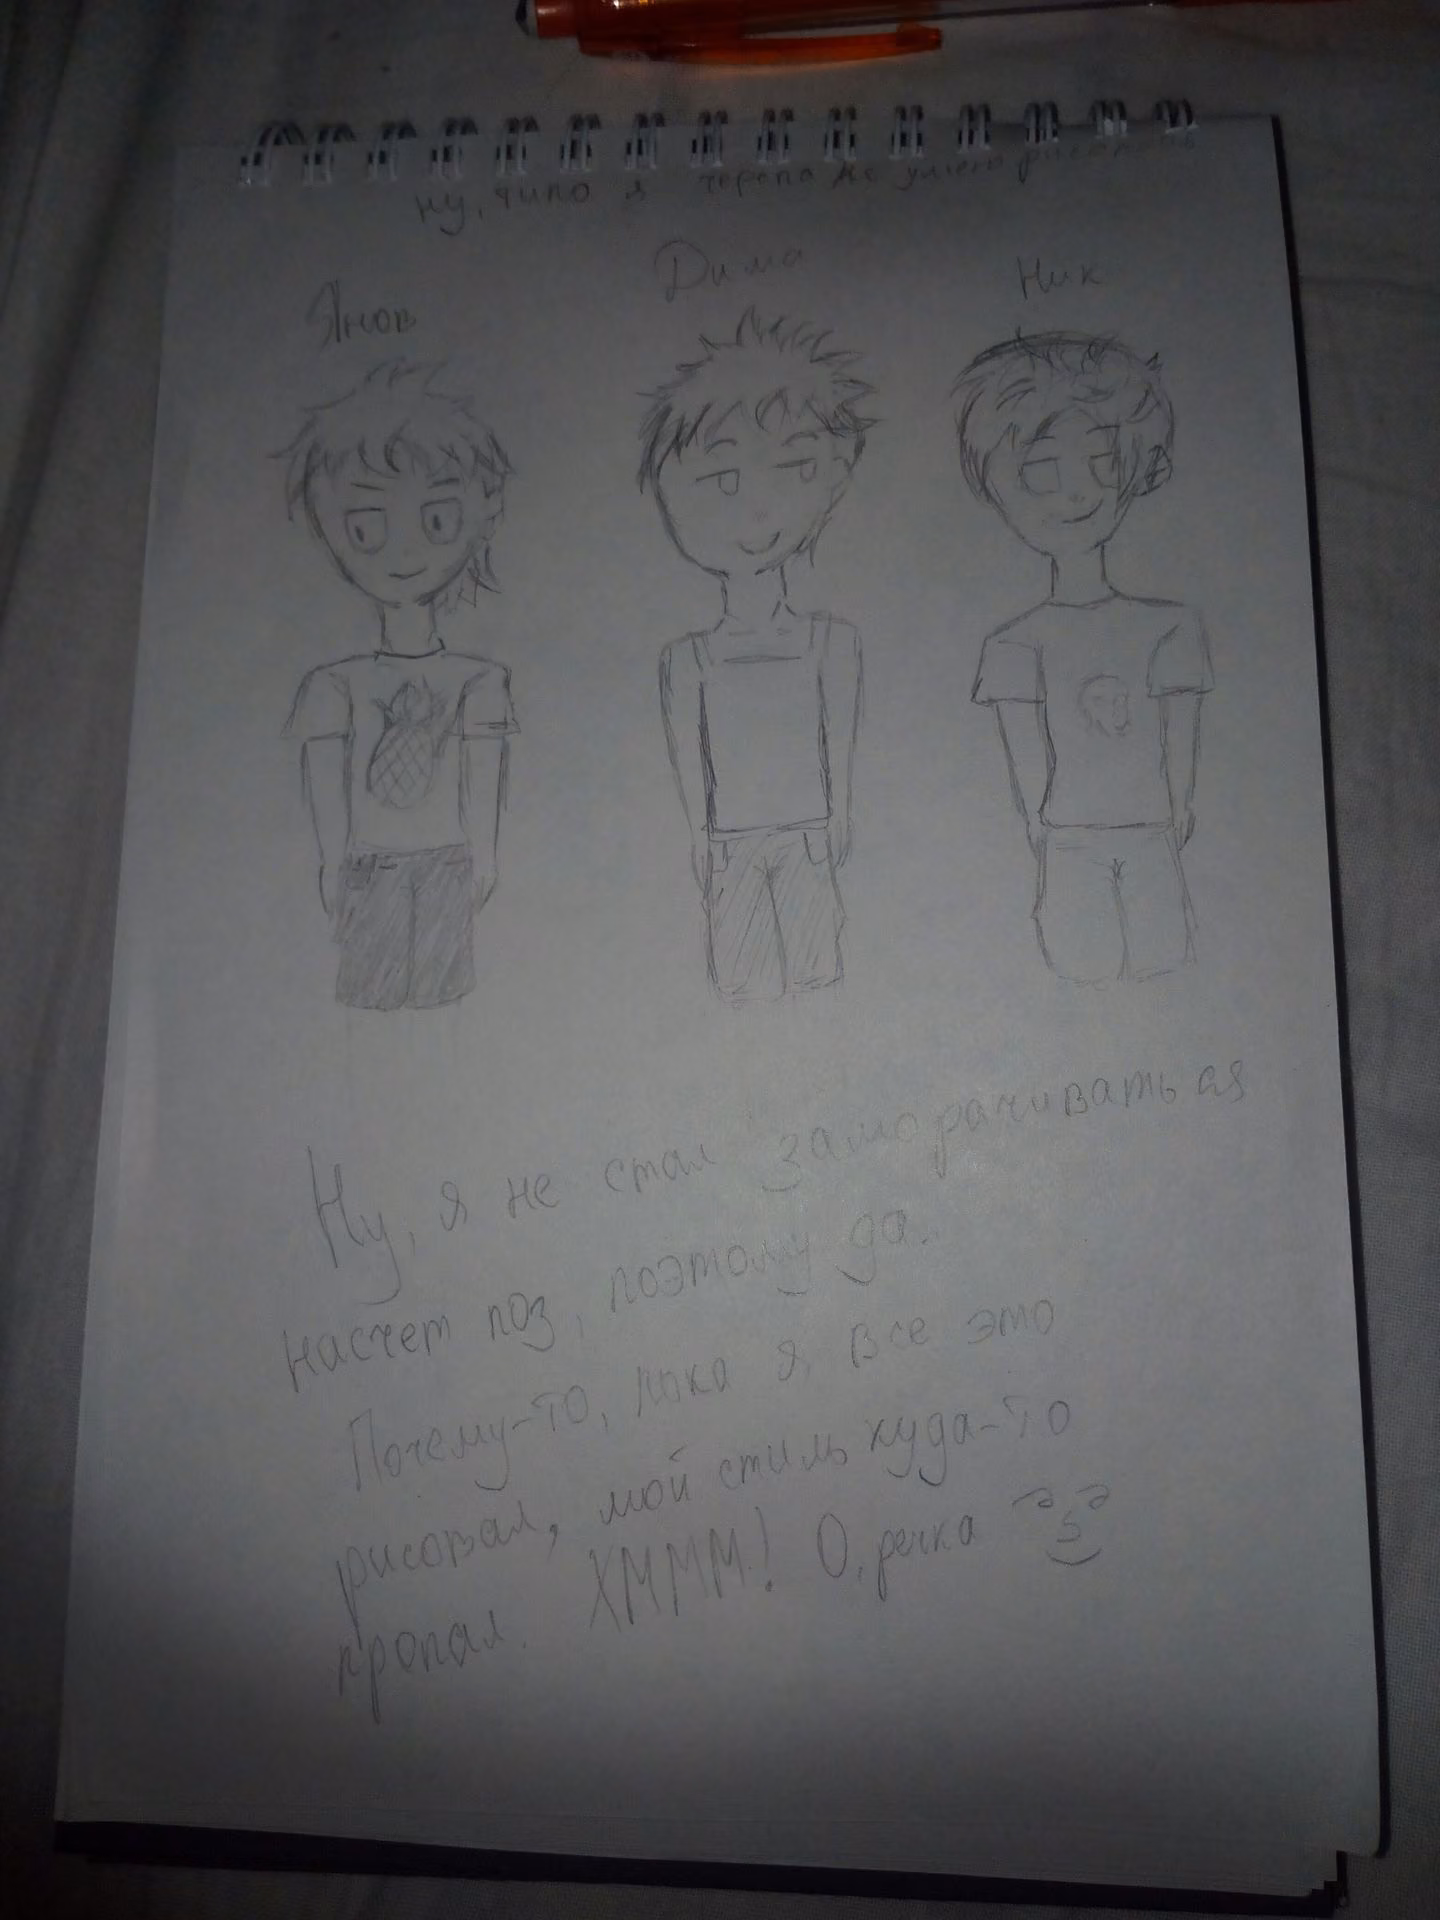 ну, типо я черепа не умею рисовать
Янов
Дима
Ник
Ну, я не стал заморачиваться
насчет поз, поэтому да.
Почему-то, пока я все это
рисовал, мой стиль куда-то
пропал. ХМММ! О, речка